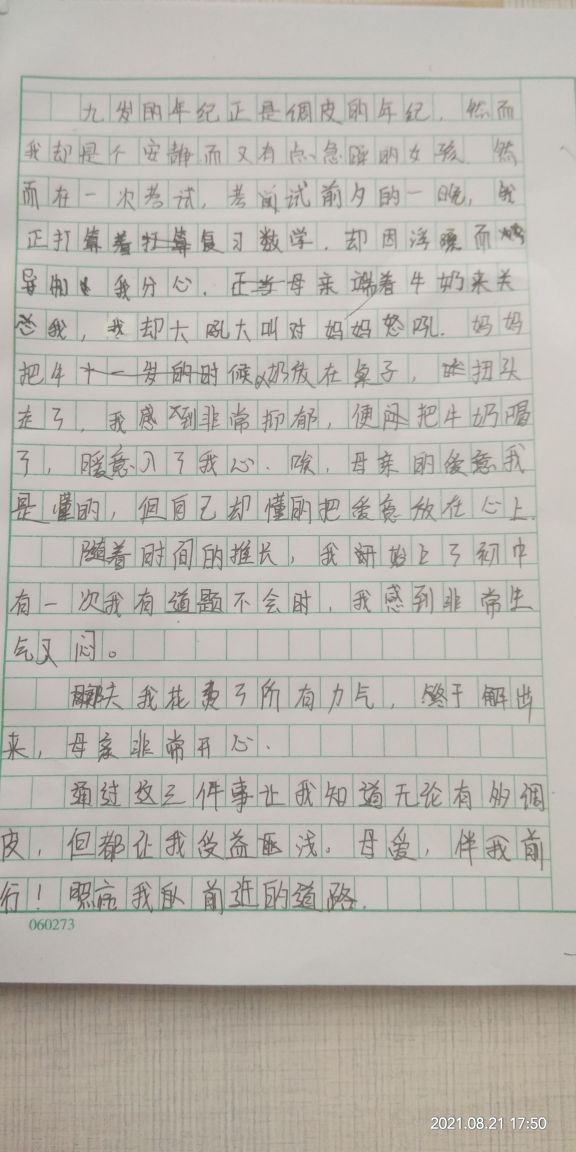 九岁的年纪正是调皮的年纪，然而
我却是个安静而又有点急躁的女孩。然
而在一次考试，考试前夕的一晚，我
正打算着复习数学，却因浮躁而
导致我分心。母亲端着牛奶来关
心我，我却大吼大叫对妈妈怒吼。妈妈
把牛奶放在桌子，扭头
走了，我感到非常抑郁，便把牛奶喝
了，暖意入了我心。唉，母亲的爱意我
是懂的，但自己却懂的把爱意放在心上。
随着时间的推长，我开始上了初中
有一次我有道题不会时，我感到非常生
气又闷。
我花费了所有力气，终于解出
来，母亲非常开心。
通过这三件事让我知道无论有多调
皮，但都让我受益匪浅。母爱，伴我前
行！照亮我前进的道路。
060273
2021.08.21 17:50